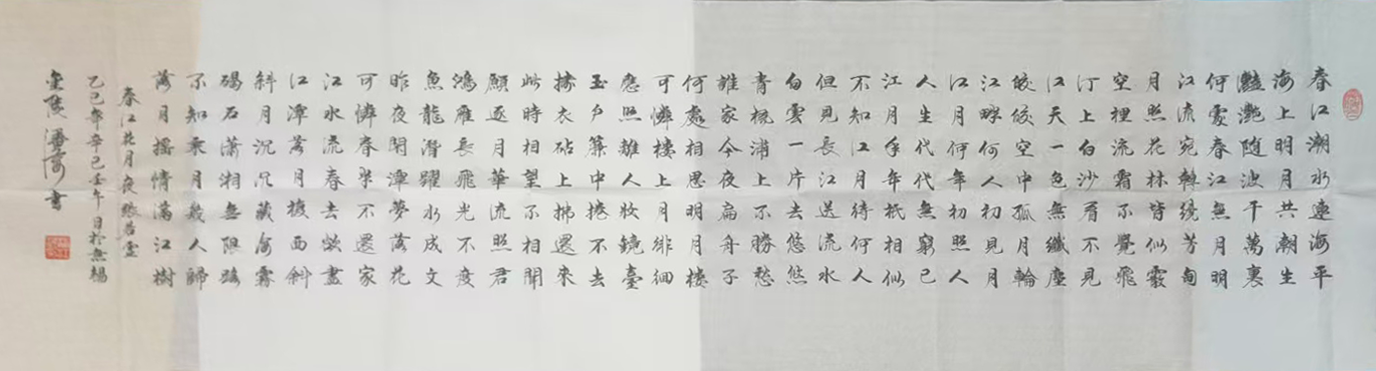 春江潮水連海平
海上明月共潮生
灩灩隨波千萬裏
何處春江無月明
江流宛轉繞芳甸
月照花林皆似霰
空裡流霜不覺飛
汀上白沙看不見
江天一色無纖塵
皎皎空中孤月輪
江畔何人初見月
江月何年初照人
人生代代無窮已
江月年年祇相似
不知江月待何人
但見長江送流水
白雲一片去悠悠
青楓浦上不勝愁
誰家今夜扁舟子
何處相思明月樓
可憐樓上月徘徊
應照離人妝鏡臺
玉戶簾中捲不去
擣衣砧上拂還來
此時相望不相聞
願逐月華流照君
鴻雁長飛光不度
魚龍潛躍水成文
昨夜閒潭夢落花
可憐春半不還家
江水流春去欲盡
江潭落月復西斜
斜月沉沉藏海霧
碣石瀟湘無限路
不知乘月幾人歸
落月搖情滿江樹
春江花月夜 張若虛
乙巳 辛巳壬午日於無錫
金陵 書